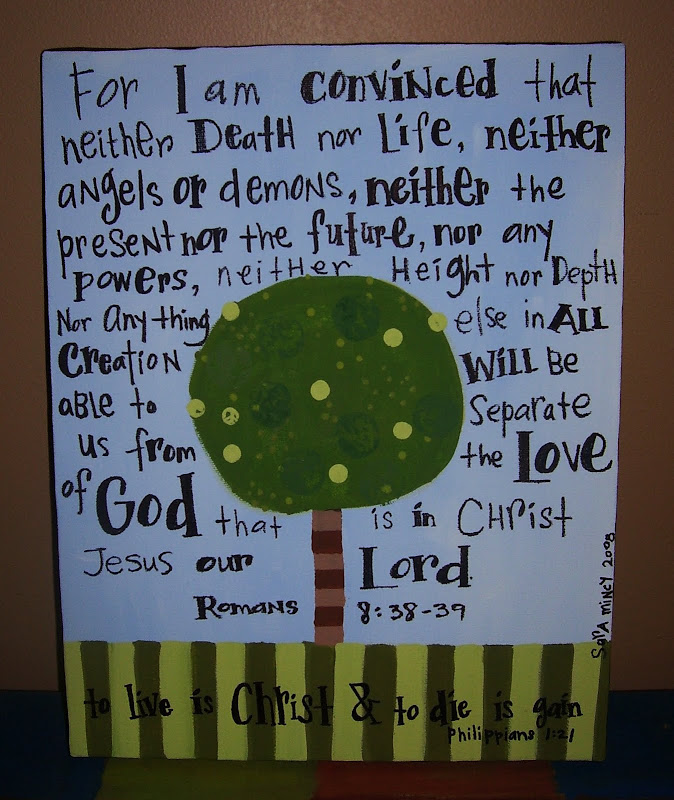 For I am convinced that
neither Death nor Life, neither
angels or demons, neither the
present nor the future, nor any
powers, neither Height nor Depth
Nor Anything else in ALL
Creation will Be
able to Separate
us from the Love
of God that is in Christ
Jesus our Lord
Romans 8:38-39
Sara Mincy 2008
to live is Christ & to die is gain
Philippians 1:21